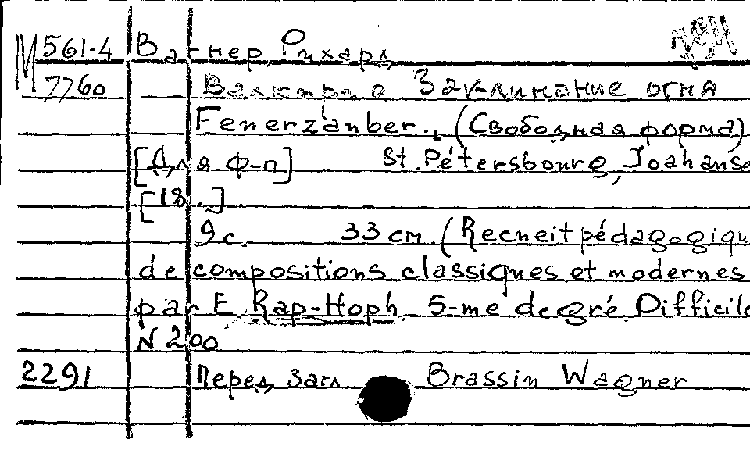 М 561-4 Вагнер Рихард
7760 Валькирия Заклинание огня
Fenerzanber. (Свободная форма)
[Для ф-п] St. Pétersbourg, Joahanse
[18 . ]
9 с. 33 см. (Recneit pédagogiqu
de compositions classiques et modernes
par E Rap-Hoph 5-me degré Difficile
N 200
2291 Перед загл Brassin Wagner